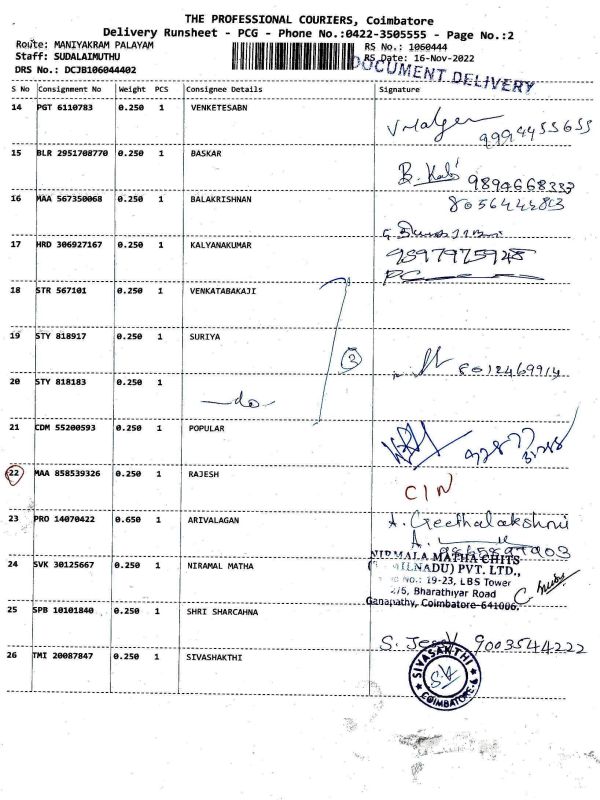 THE PROFESSIONAL COURIERS, Coimbatore
Delivery Runsheet - PCG - Phone No.:0422-3505555 - Page No.:2
Route: MANIYAKRAM PALAYAM
Staff: SUDALAIMUTHU
DRS No.: DCJB106044402
RS No.: 1060444
RS Date: 16-Nov-2022
DOCUMENT DELIVERY
S No Consignment No Weight PCS Consignee Details Signature
14 PGT 6110783 0.250 1 VENKETESABN
9994455655
15 BLR 2951708770 0.250 1 BASKAR
9894668333
16 MAA 567350068 0.250 1 BALAKRISHNAN
17 HRD 306927167 0.250 1 KALYANAKUMAR
9597975948
PC
18 STR 567101 0.250 1 VENKATABAKAJI
19 STY 818917 0.250 1 SURIYA
3
8012469914
20 STY 818183 0.250 1
-do-
21 CDM 55200593 0.250 1 POPULAR
22 MAA 858539326 0.250 1 RAJESH
CIN
23 PRO 14070422 0.650 1 ARIVALAGAN
A. Geethalakshmi
24 SVK 30125667 0.250 1 NIRAMAL MATHA
NIRMALA MATHA CHITS
NADU) PVT. LTD.,
No.: 19-23, LBS Tower
Bharathiyar Road
Ganapathy, Coimbatore-641006.
25 SPB 10101840 0.250 1 SHRI SHARCAHNA
S. 9003544222
26 TMI 20087847 0.250 1 SIVASHAKTHI
SIVASAKTHI
COIMBATORE-6